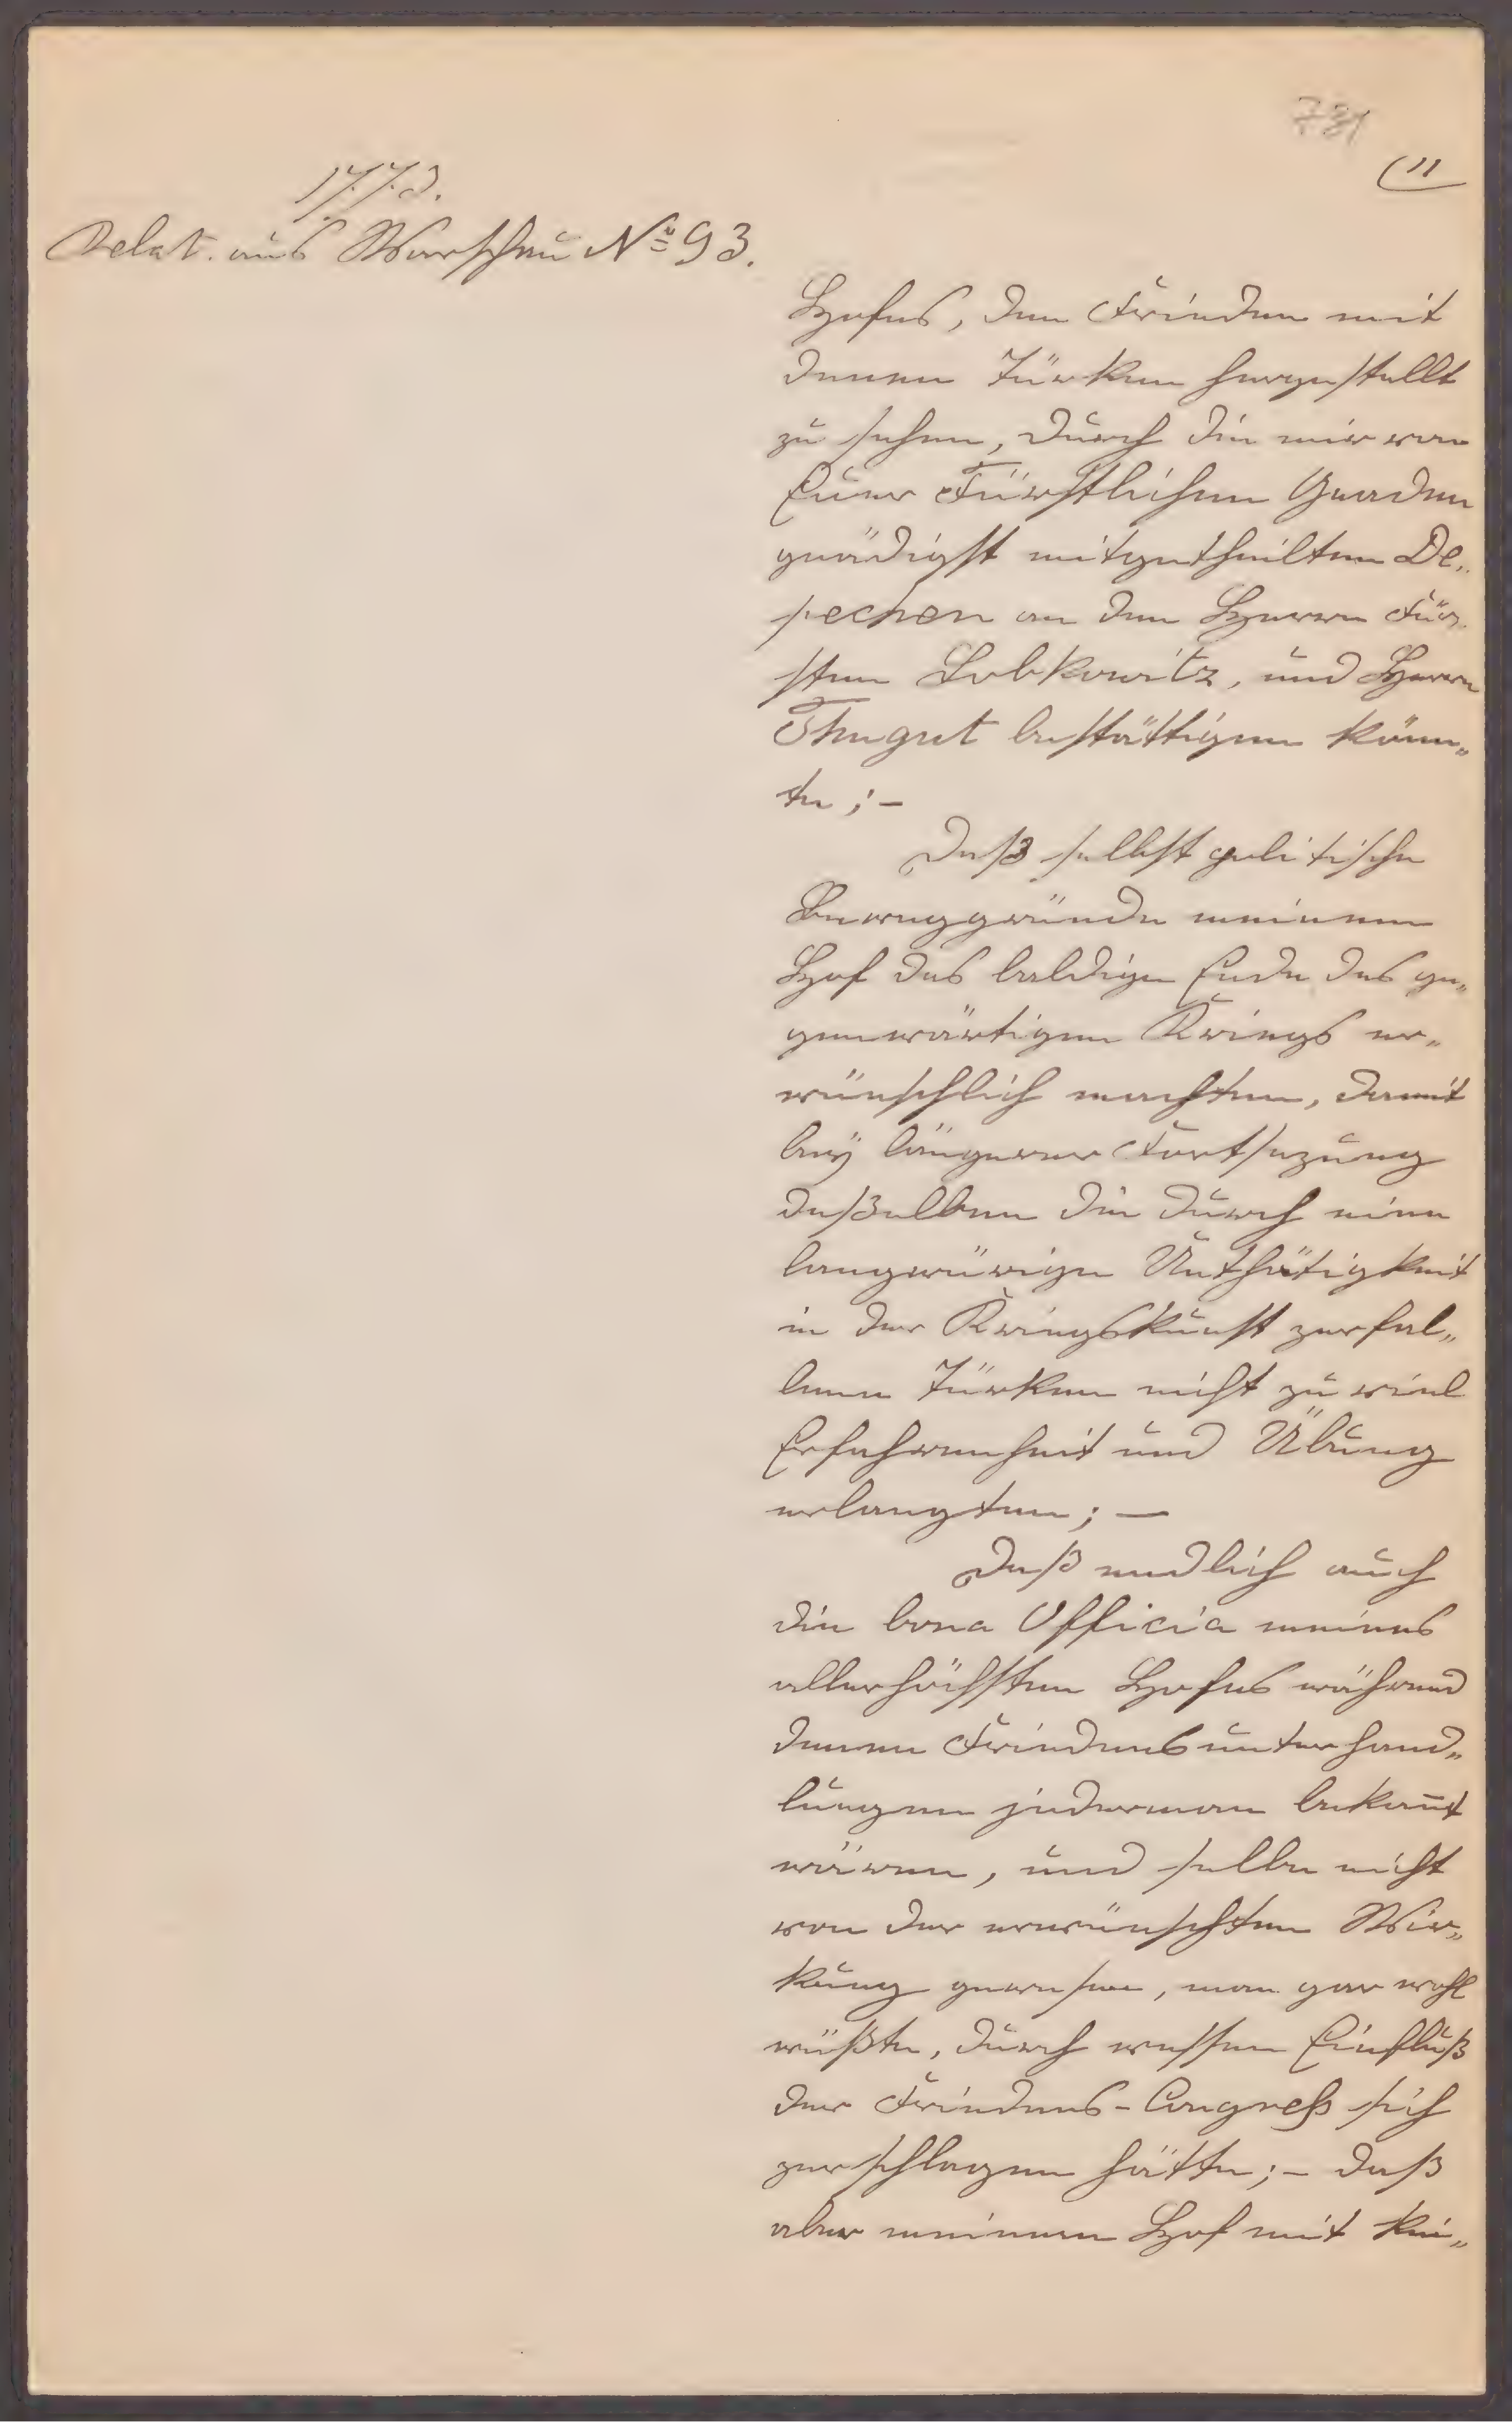 731
(11
1773.
Relat. aus Warschau No 93.
Hofes, den Frieden mit
denen Türken hergestellt
zu sehen, durch die mir von
Euer Fürstlichen Gnaden
gnädigst mitgetheilten De„
pechen an den Herrn Für„
sten Lobkowitz, und Herrn
Thugut bestättigen könn„
te; –
Daß selbst politische
Beweggründe meinem
Hof das baldige Ende des ge„
genwärtigen Kriegs er„
wünschlich machten, damit
beÿ längerer Fortsezung
deßelben die durch eine
langwürige Unthätigkeit
in der Kriegskunst zerfal„
lene Türken nicht zu viel
Erfahrenheit und Übung
erlangten; —
Daß endlich auch
die bona Officia meines
allerhöchsten Hofes während
denen Friedensunterhand„
lungen jederman bekan̄t
wären, und selbe nicht
von der erwünschten Wir„
kung gewesen, man gar wohl
wüßte, durch wessen Einfluß
der Friedens-Congreß sich
zerschlagen hätte; – daß
aber meinem Hof mit kei„